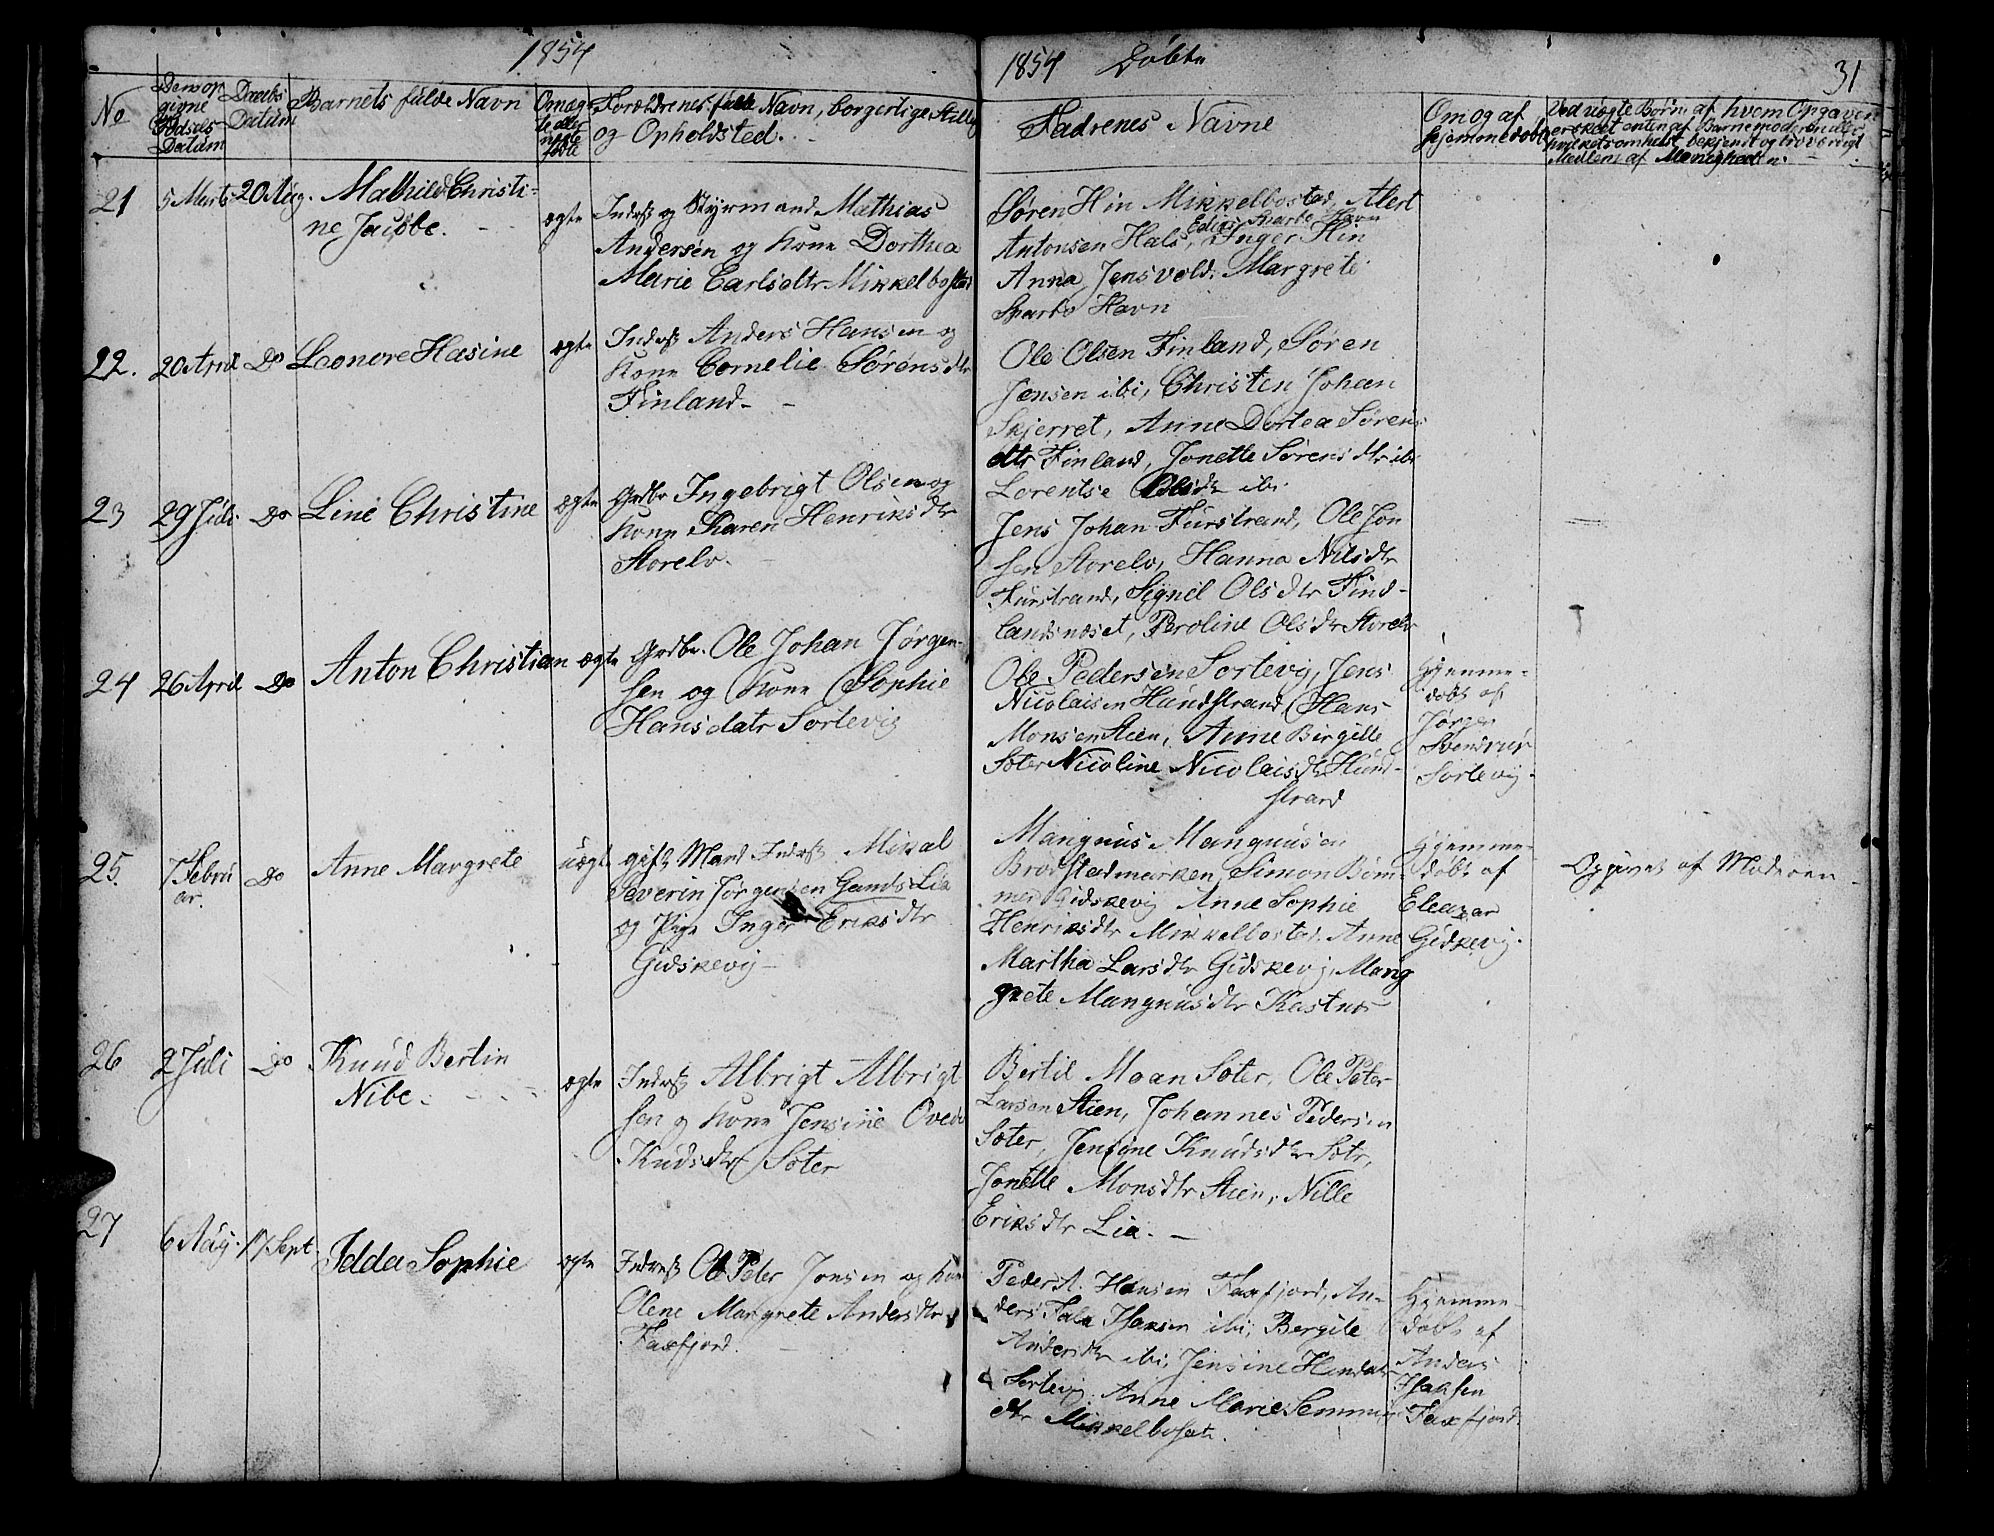 1854
1854 Døbte 31
No
Den op
givne
Fødsels
Datum
Daabs
Datum
Barnets fulde Navn
Om ægte
eller
uægte
født
Forældrenes fulde Navn, borgerlige Stilling
og Opholdsted.
Fadrenes Navne
Om og af
hjemmedøbt
Ved uægte Børn af hvem Opgaven
er skeet enten af Barnemoderen eller
hvilketsomhelst bekjendt og troværdigt
Medlem af Menigheden.
21 5 Marts 20 Aug. Mathilde Christi-
ne Jacobe.
ægte
Inderst og Styrmand Mathias
Andersen og Kone Dorthea
Marie Carlsdtr Mikkelbostad
Søren Hin Mikkelbostad, Alert
Antonsen Hals, Inger Hin
Anna Jensvold. Margrete
Havn
22. 20 April Do Leonore Hasine
ægte
Inderst Anders Hansen og
Kone Cornelie Sørensdtr
Finland -
Ole Olsen Finland, Søren
Jensen ibi, Christen Johan
Skjerret, Anne Dortea Sørens
dtr Finland, Jonette Sørensdtr ibi
Lorentse Olsdtr ibi
23 29 Juli Do Line Christine
ægte
Grdbr Ingebrigt Olsen og
Kone Karen Henriksdtr
Storelv.
Jens Johan Furstrand, Ole Jon
sen Storelv, Hanna Nilsdtr
Furstrand, Signil Olsdtr Find-
landsnæset, Peroline Olsdtr Storelv
24 26 April Do Anton Christian
ægte
Grdbr. Ole Johan Jørgen-
sen og Kone Sophie
Hansdatr Sortevig
Ole Pedersen Sortevig, Jens
Nicolaisen Hundstrand, Hans
Monsen Steen, Anne Birgitte
Soter Nicoline Nicolaisdtr Hund-
strand
Hjemme-
døbt af
Jørgen
Sortevig.
25. 7 Febru
ar. Do Anne Margrete
uægte
gift Mand Inderst Mikal
Severin Jørgensen Lia
og Pige Inger Eriksdtr
Gidskevig -
Mangnus Mangnusen
Brodstadmarken, Simon Bøm
mer Gidskevig Anne Sophie
Henriksdtr Mikkelbostad, Anne
Martha Larsdtr Gidskevig, Mang
grete Mangnusdtr Kastnes
Hjemme-
døbt af
Eleazar
Gidskevig.
Opgivet af Moderen -
26 2 Juli Do Knud Bertin
Nibe.
ægte
Inderst Albrigt Albrigt
sen og Kone Jensine
Knudsdtr Soter
Bertil Moan Soter, Ole Peter
Larsen Steen, Johannes Pedersen
Soter, Jensine Knudsdtr Sotr,
Jonette Monsdtr Steen, Nille
Eriksdtr Lia. -
27 6 Aug. 17 Sept. Idda Sophie
ægte
Inderst Ole Peter Jonsen og Kone
Olene Margrete Andersdtr
Faxfjord.
Peder A. Hansen Faxfjord, An-
ders Isaksen ibi, Bergite
Andersdtr ibi, Jensine Hansdatr
Sortevig, Anne Marie
dtr Mikkelbostad.
Hjemme-
døbt af
Anders
Isaksen
Faxfjord